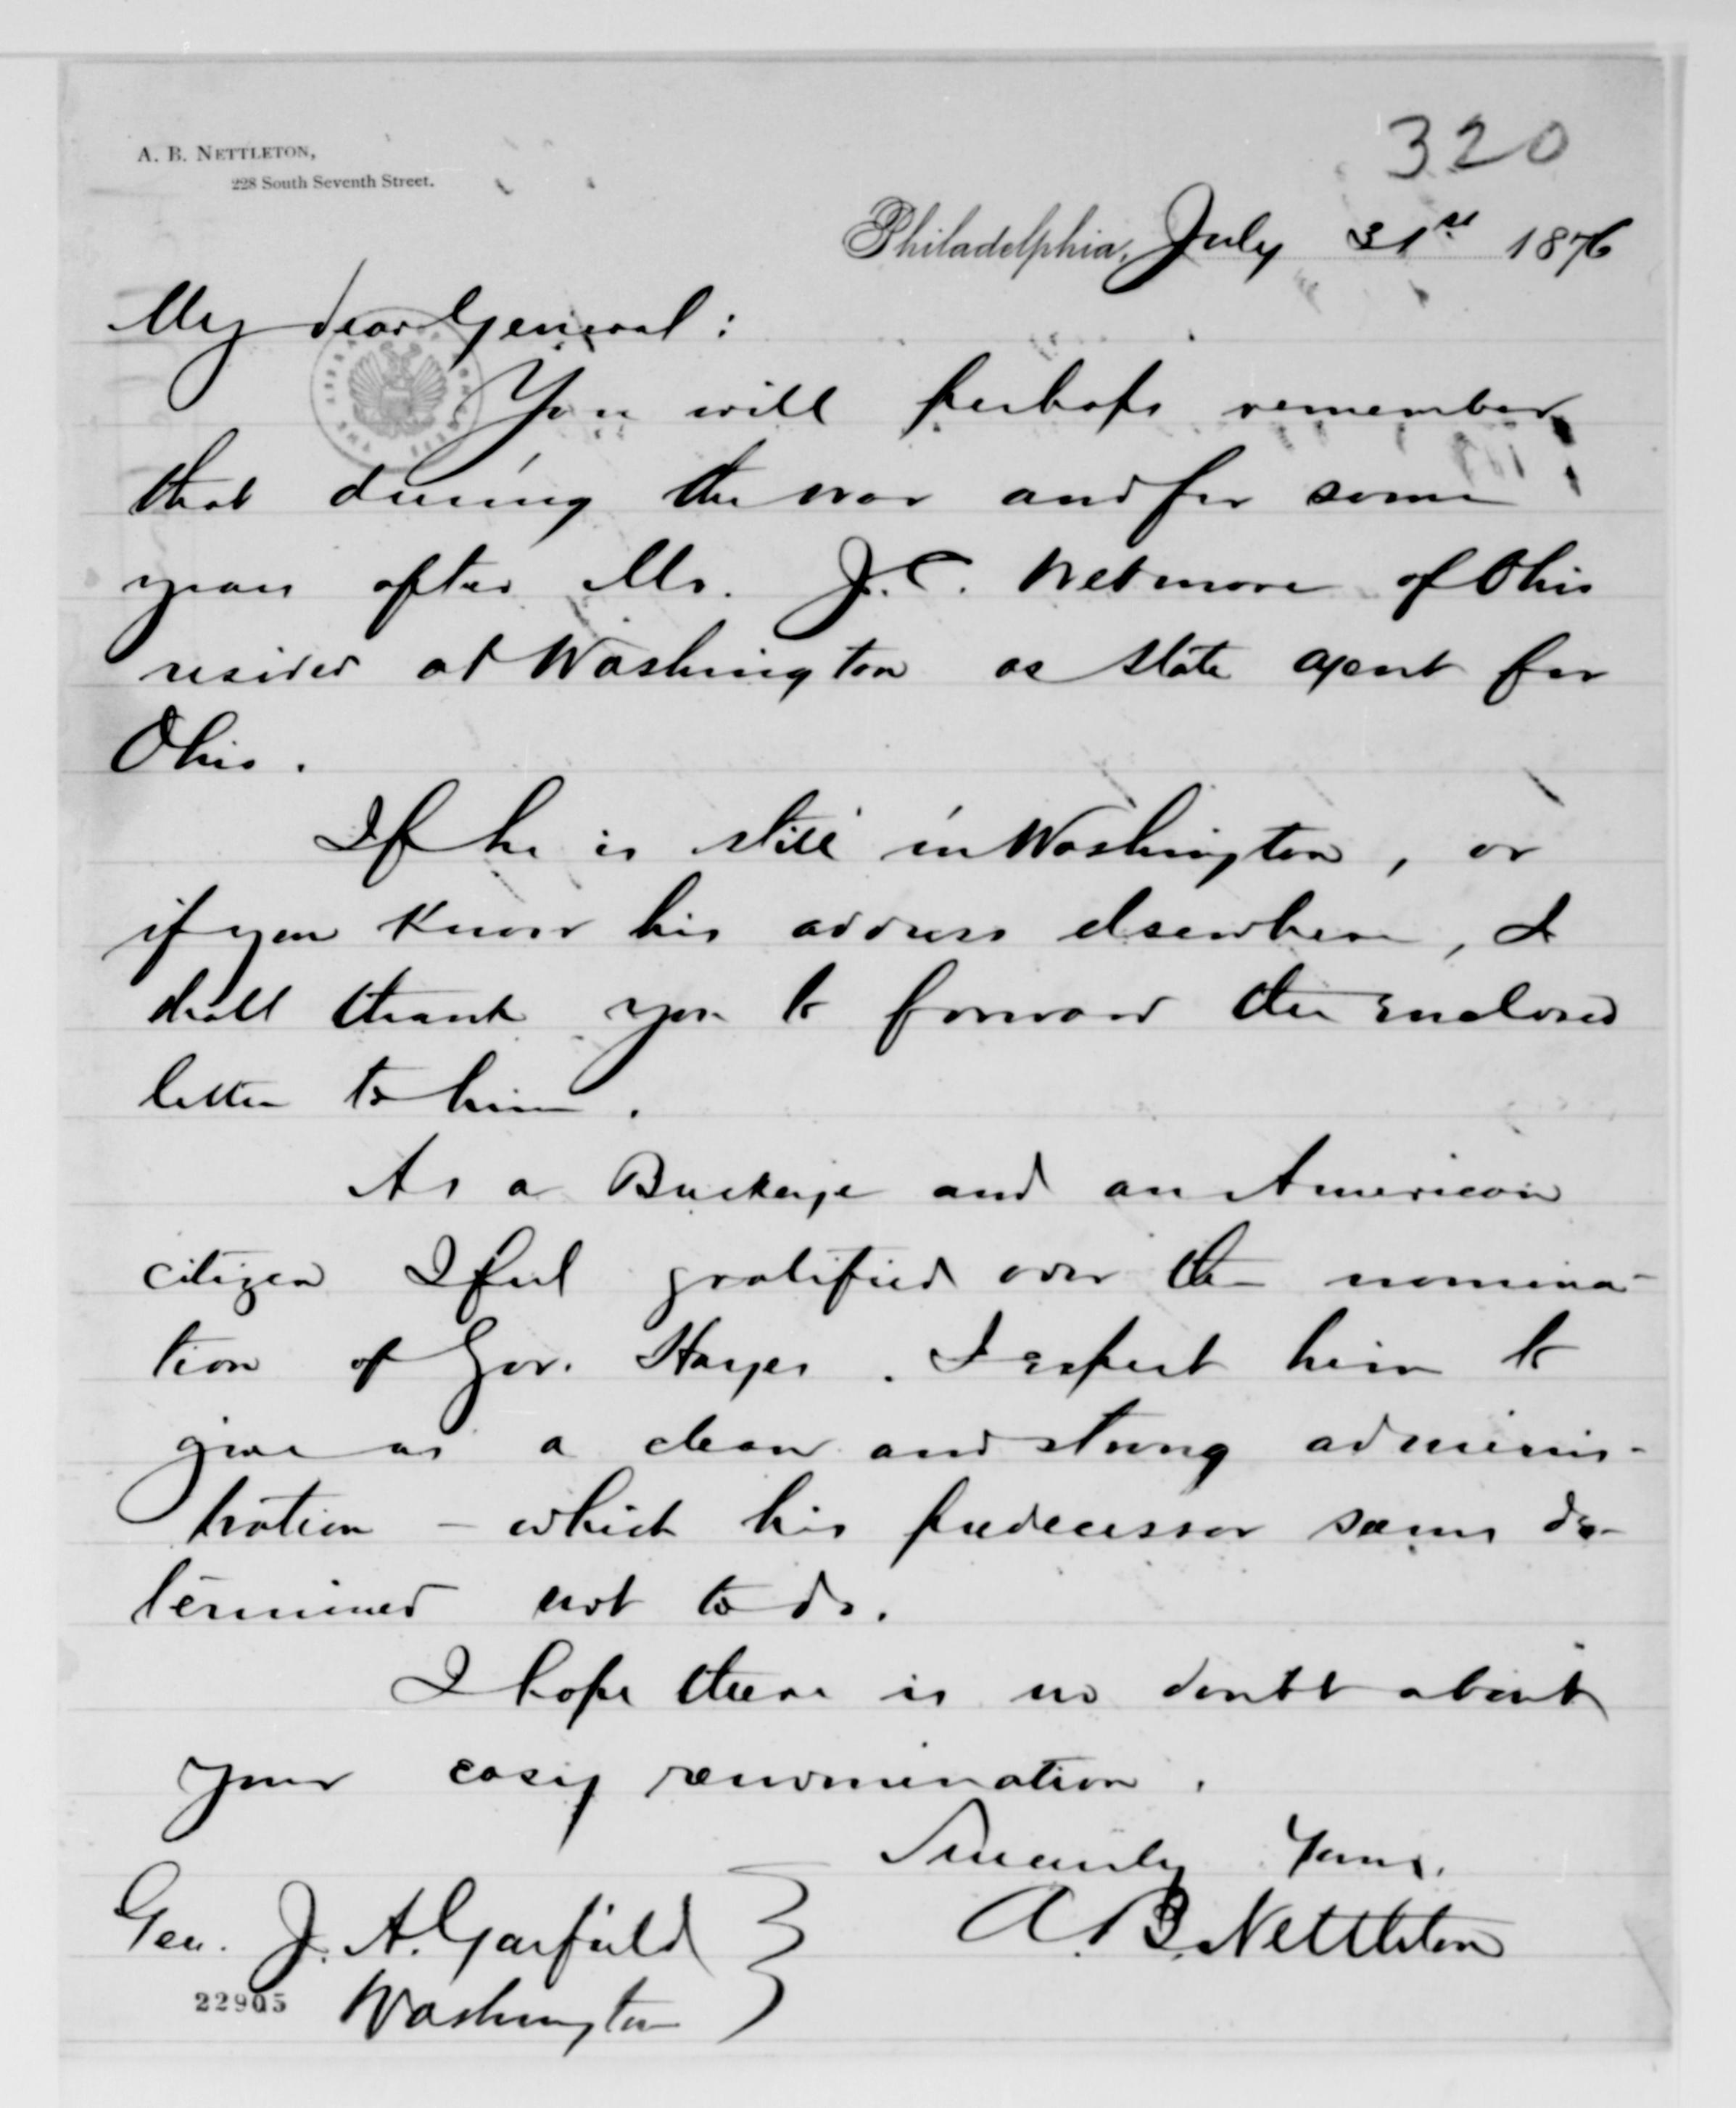 320
A. B. NETTLETON,
228 South Seventh Street.
Philadelphia, July 31st 1876
My dear General:
You will perhaps remember
that during the war and for some
years after Mr. J. C. Wetmore of Ohio
resided at Washington as state agent for
Ohio.
If he is still in Washington, or
if you know his address elsewhere, I
shall thank you to forward the enclosed
letter to him.
As a Buckeye and an American
citizen I feel gratified over the nomina-
tion of Gov. Hayes. I expect him to
give us a clean and strong adminis-
tration – which his predecessor seems de-
termined not to do.
I hope there is no doubt about
your easy renomination.
Sincerely Yours,
A. B. Nettleton
Gen. J. A. Garfield
Washington
22905